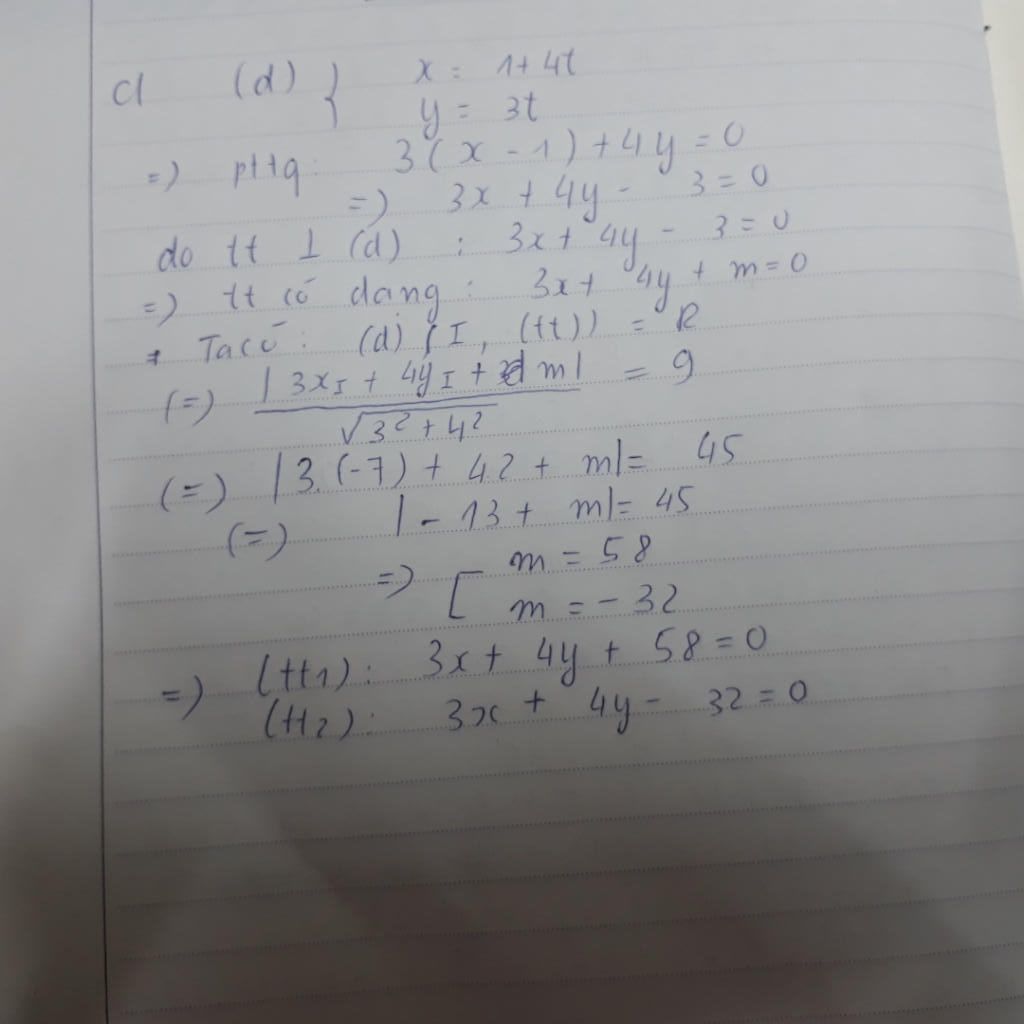 c) (d) } x = 1+4t
y = 3t
=) pttq: 3(x - 1) + 4y = 0
=) 3x + 4y - 3 = 0
do tt ⊥ (d) : 3x + 4y - 3 = 0
=) tt có dạng: 3x + 4y + m = 0
* Ta có: (d) (I, (tt)) = R
(=) |3x_I + 4y_I + m| / √3² + 4² = 9
(=) |3.(-7) + 4.2 + m| = 45
(=) |-13 + m| = 45
=) [ m = 58
m = -32
=) (tt1): 3x + 4y + 58 = 0
(tt2): 3x + 4y - 32 = 0